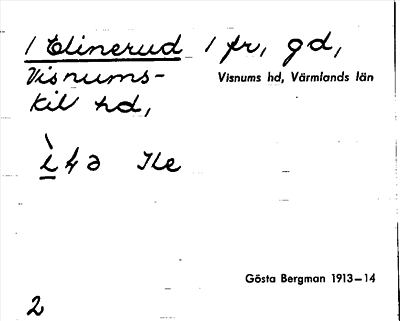 1 Elinerud 1 fr, gd,
Visnums-
kil hd,
Visnums hd, Värmlands län
Gösta Bergman 1913–14
2